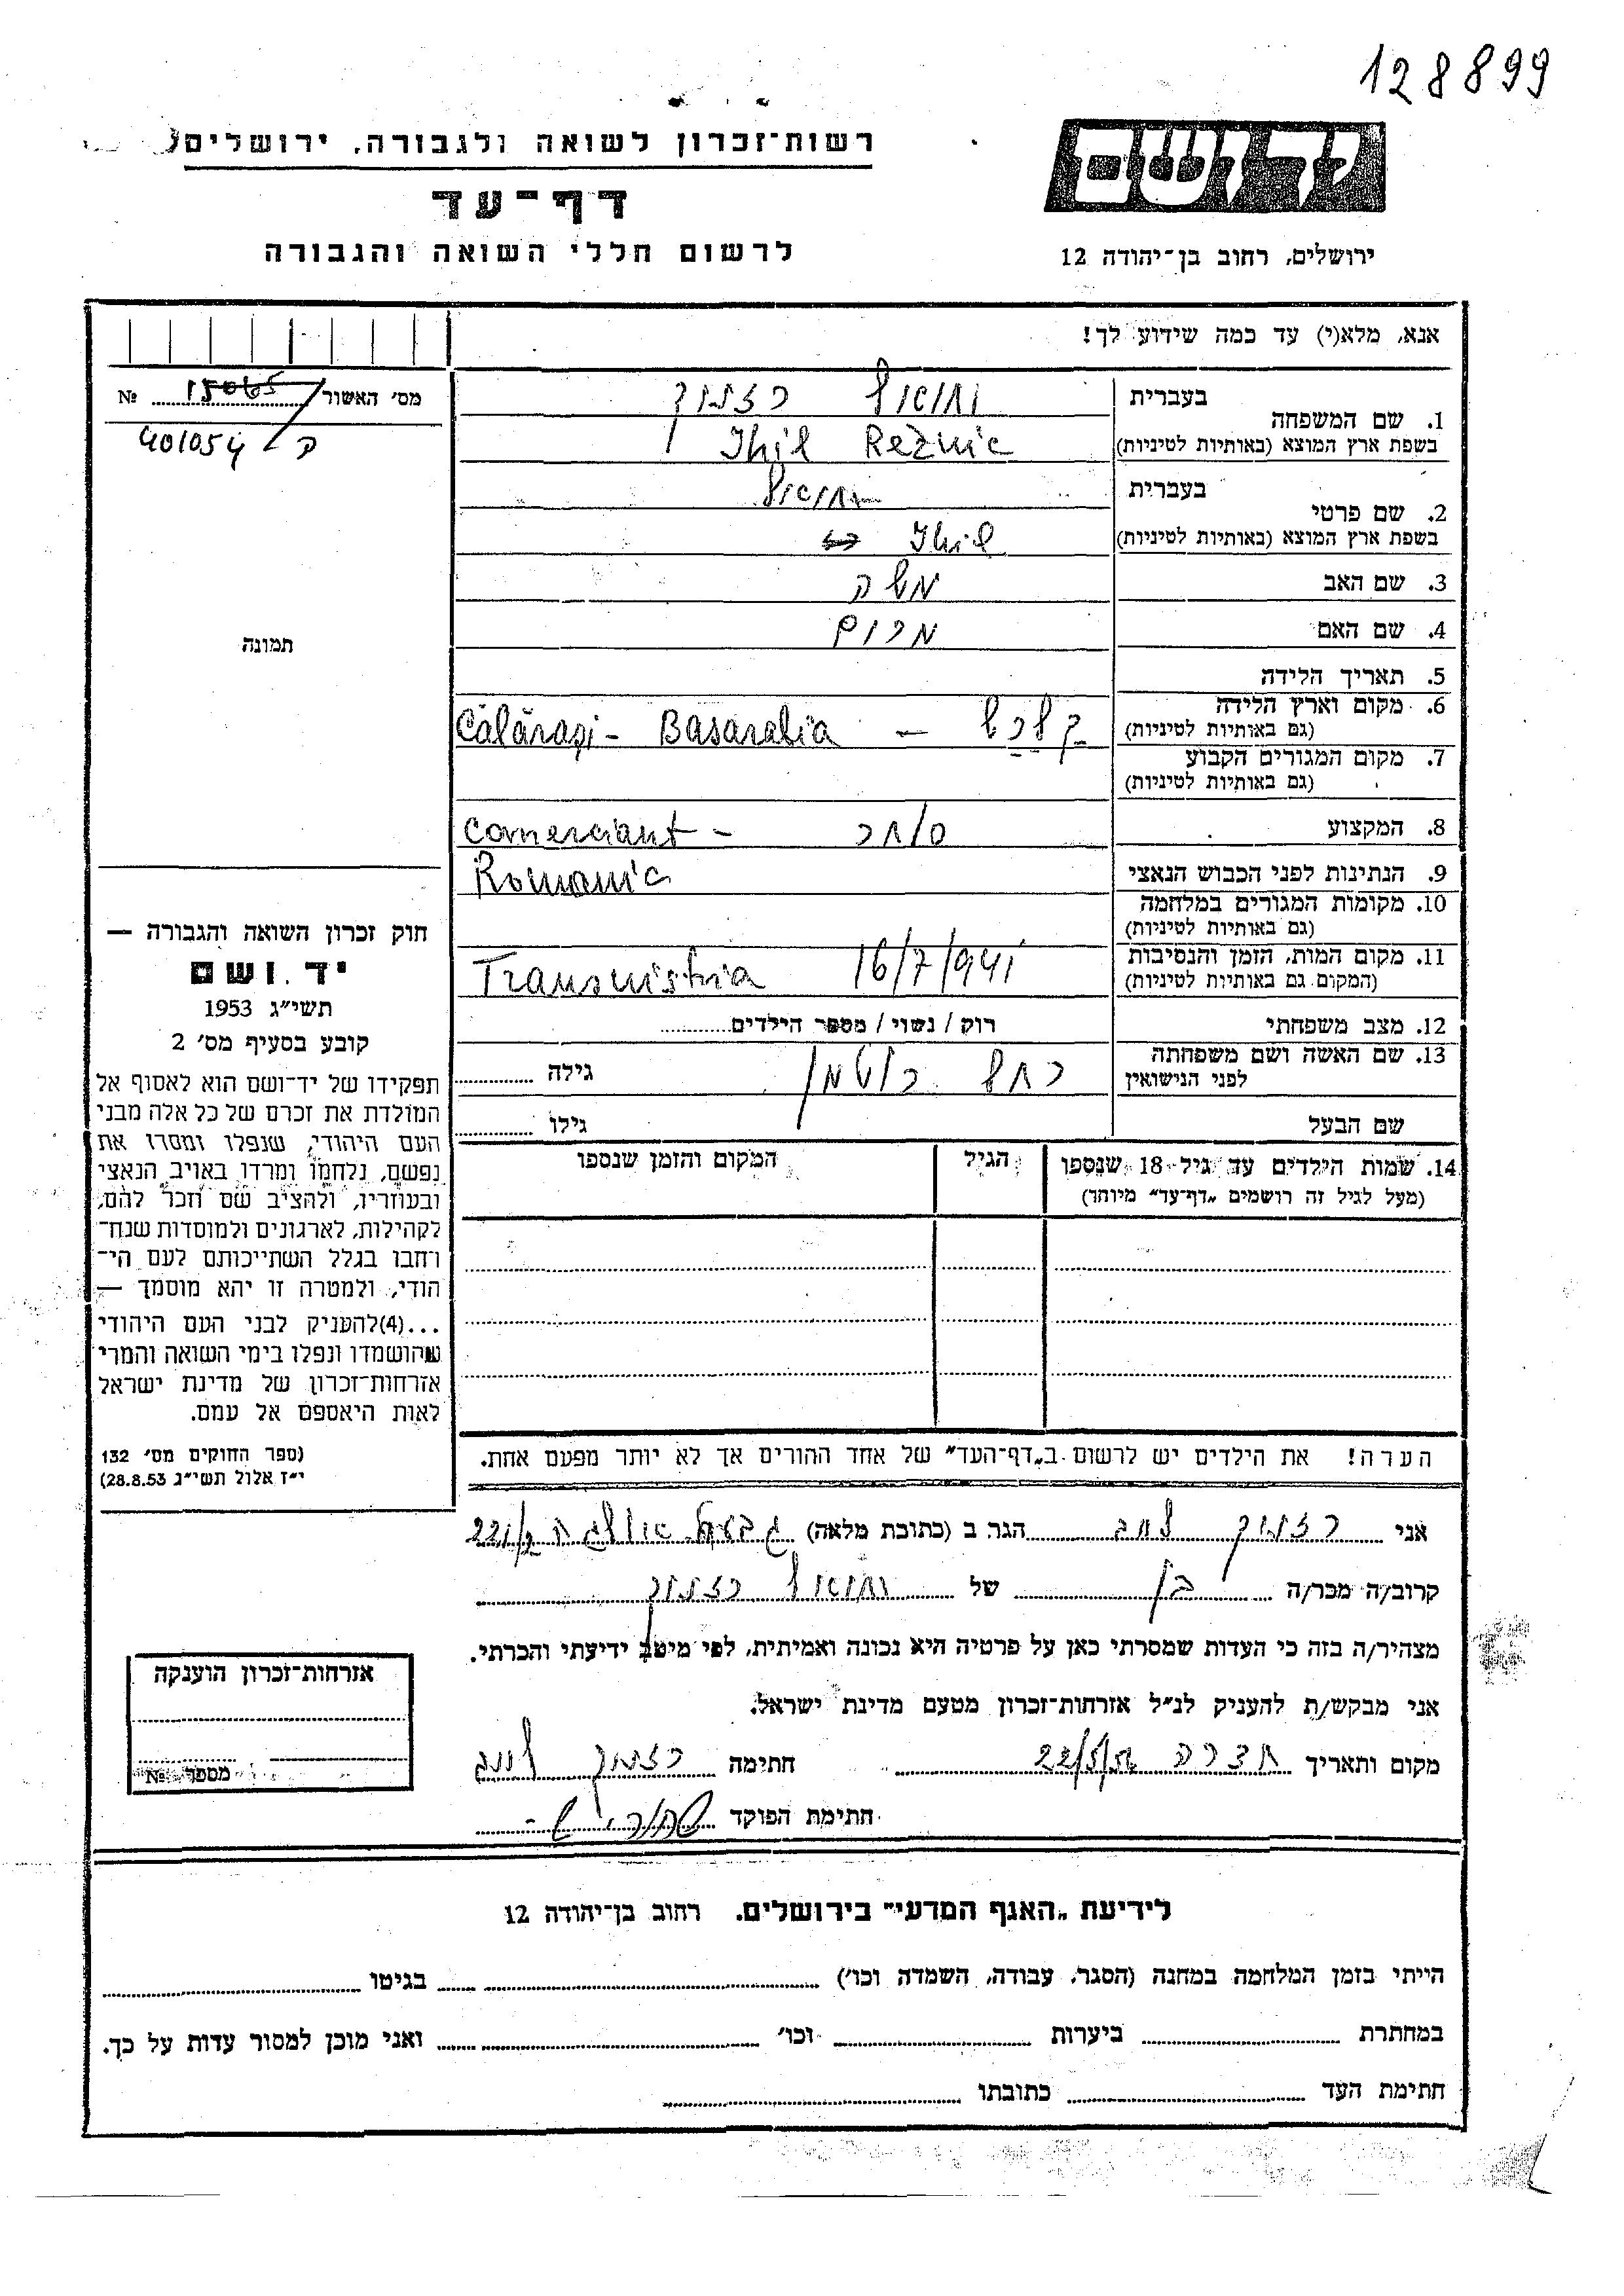 128899
יד ושם
ירושלים, רחוב בן־יהודה 12
רשות־זכרון לשואה ולגבורה, ירושלים
דף־עד
לרשום חללי השואה והגבורה
אנא, מלא(י) עד כמה שידוע לך!
מס׳ האשור 15065 №
401054
תמונה
בעברית יחיאל רזניק
1. שם המשפחה
בשפת ארץ המוצא (באותיות לטיניות) Ihil Reznic
בעברית יחיאל
2. שם פרטי
בשפת ארץ המוצא (באותיות לטיניות) Ihil
3. שם האב משה
4. שם האם מרים
5. תאריך הלידה
6. מקום וארץ הלידה
(גם באותיות לטיניות) קלרש – Călărași - Basarabia
7. מקום המגורים הקבוע
(גם באותיות לטיניות)
8. המקצוע סוחר - Comerciant
9. הנתינות לפני הכבוש הנאצי Romania
10. מקומות המגורים במלחמה
(גם באותיות לטיניות)
11. מקום המות, הזמן והנסיבות
(המקום גם באותיות לטיניות) Transnistria 16/7/941
12. מצב משפחתי רוק / נשוי / מספר הילדים
13. שם האשה ושם משפחתה
לפני הנישואין רחל רויטמן גילה
שם הבעל גילו
14. שמות הילדים עד גיל 18 שנספו
(מעל לגיל זה רושמים „דף־עד״ מיוחד)
הגיל
המקום והזמן שנספו
חוק זכרון השואה והגבורה —
יד ושם
תשי״ג 1953
קובע בסעיף מס׳ 2
תפקידו של יד־ושם הוא לאסוף אל
המולדת את זכרם של כל אלה מבני
העם היהודי, שנפלו ומסרו את
נפשם, נלחמו ומרדו באויב הנאצי
ובעוזריו, ולהציב שם וזכר להם,
לקהילות, לארגונים ולמוסדות שנח־
רחבו בגלל השתייכותם לעם הי־
הודי, ולמטרה זו יהא מוסמך —
...(4)להעניק לבני העם היהודי
שהושמדו ונפלו בימי השואה והמרי
אזרחות־זכרון של מדינת ישראל
לאות היאספם אל עמם.
(ספר החוקים מס׳ 132
י״ז אלול תשי״ג 28.8.53)
הערה! את הילדים יש לרשום ב„דף־העד״ של אחד ההורים אך לא יותר מפעם אחת.
אני רזניק הגר ב (כתובת מלאה) גבעת אולגה 221
קרוב/ה מכר/ה בן של יחיאל רזניק
מצהיר/ה בזה כי העדות שמסרתי כאן על פרטיה היא נכונה ואמיתית, לפי מיטב ידיעתי והכרתי.
אני מבקש/ת להעניק לנ״ל אזרחות־זכרון מטעם מדינת ישראל.
מקום ותאריך חדרה 22/5/56 חתימה רזניק
חתימת הפוקד
אזרחות־זכרון הוענקה
מספר №
לידיעת „האגף המדעי״ בירושלים. רחוב בן־יהודה 12
הייתי בזמן המלחמה במחנה (הסגר, עבודה, השמדה וכו׳) בגיטו
במחתרת ביערות וכו׳ ואני מוכן למסור עדות על כך.
חתימת העד כתובתו